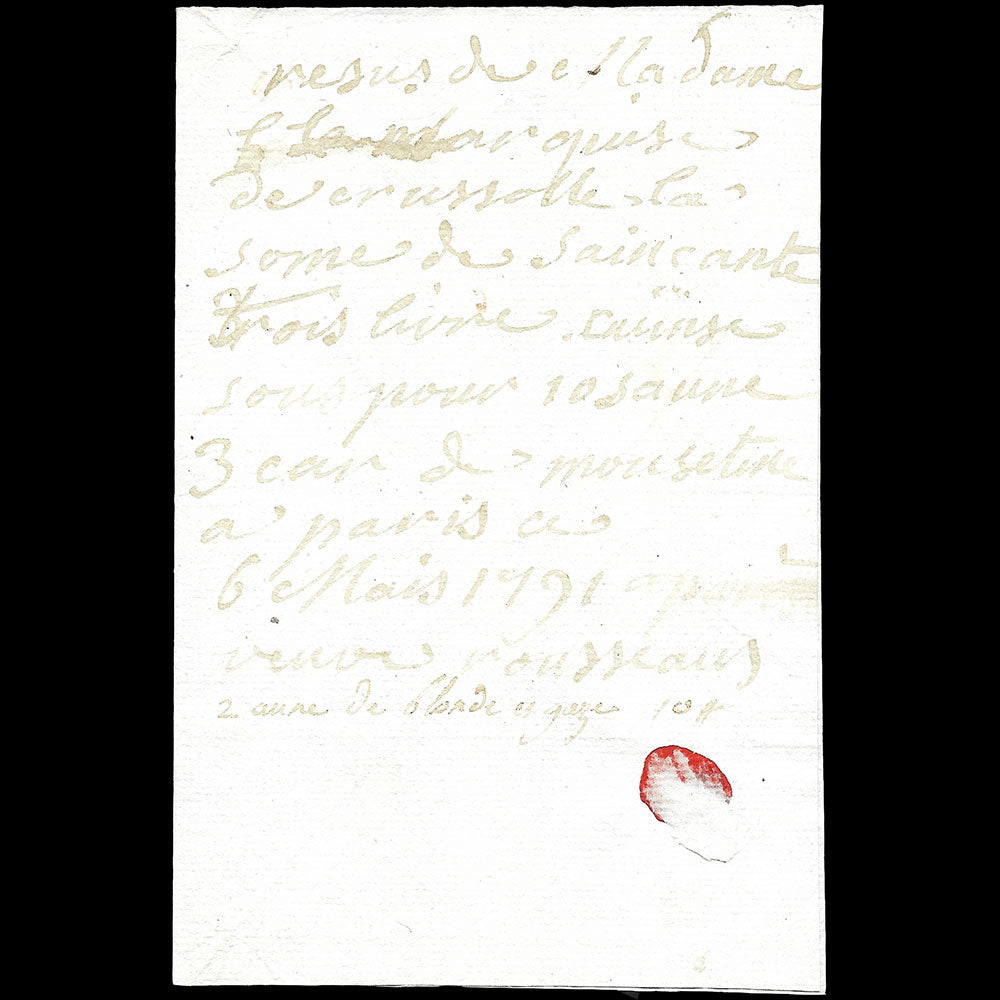 resus de Madame
la marquise
de crussolle la
some de saincante
trois livre cuinse
sous pour 10 aune
3 car de mouseline
a paris ce
6 Mais 1791
veuve rousseaus
2 aune de blonde 10#